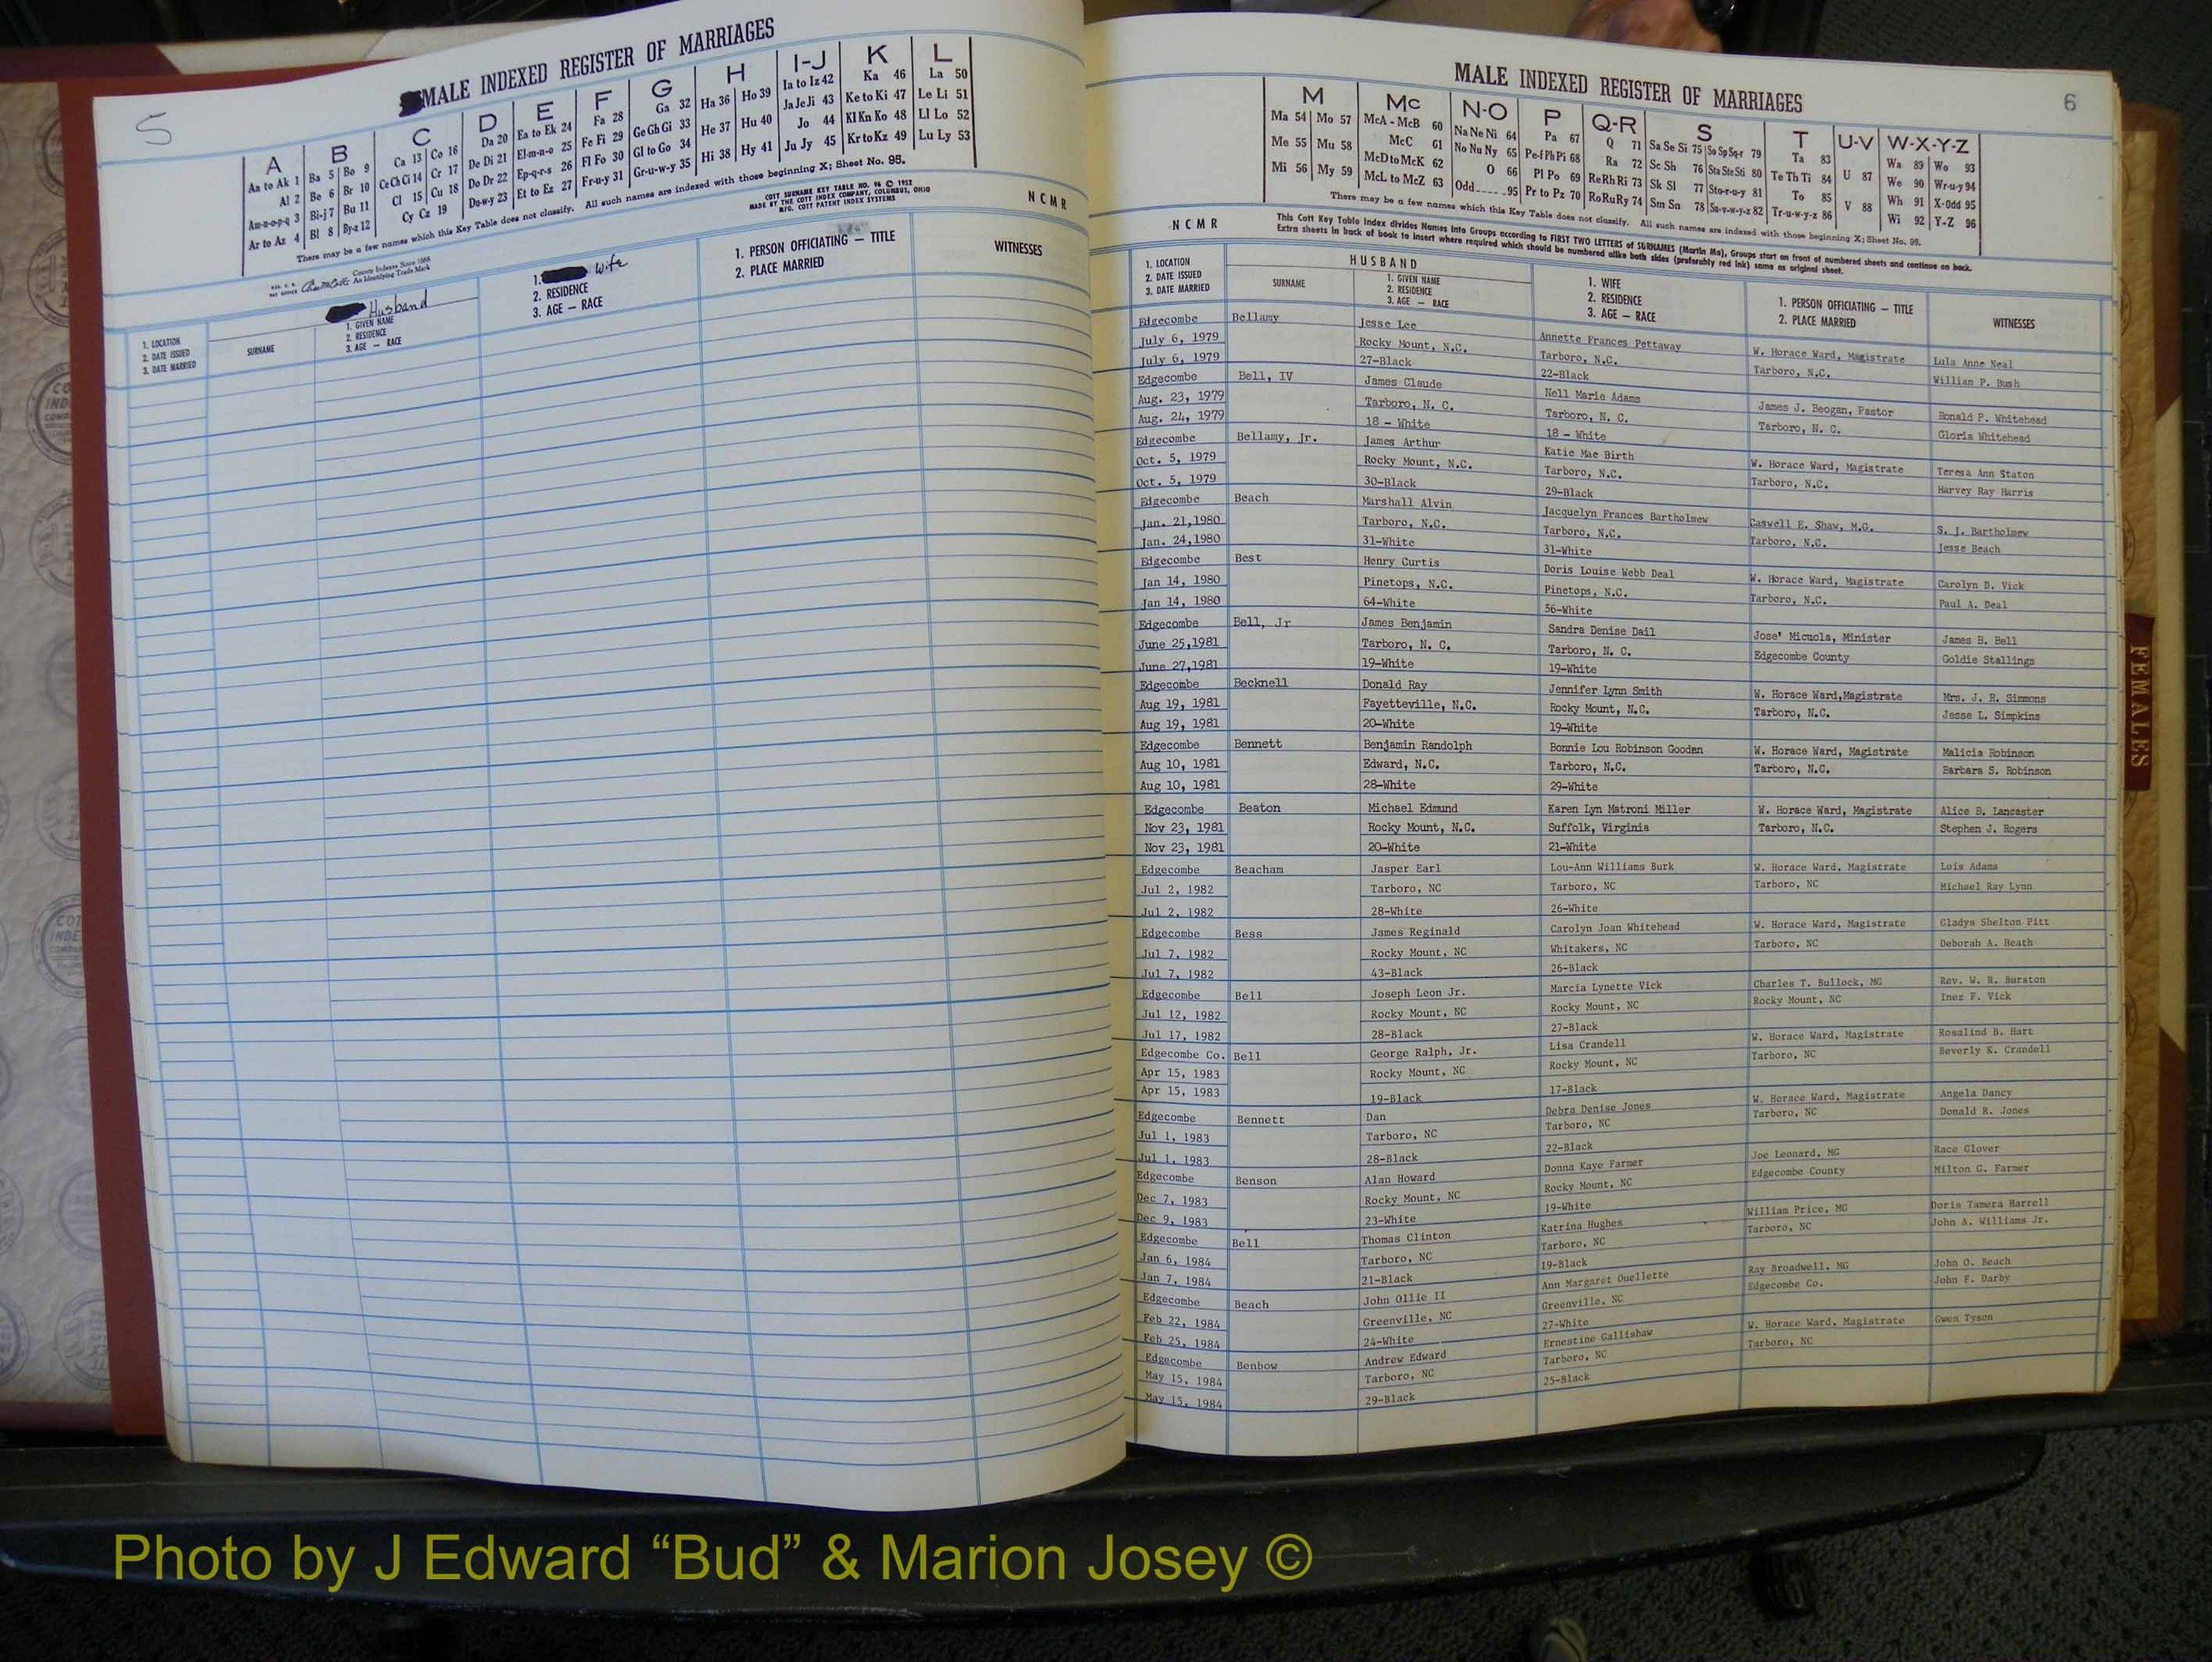 5
MALE INDEXED REGISTER OF MARRIAGES
A B C D E F G H I-J K L
Aa to Ak 1 Ba 5 Bo 9 Ca 13 Co 16 Da 20 Ea to Ek 24 Fa 28 Ga 32 Ha 36 Ho 39 Ia to Iz 42 Ka 46 La 50
Al 2 Be 6 Br 10 Ce Ch Ci 14 Cr 17 De Di 21 El-m-n-o 25 Fe Fi 29 Ge Gh Gi 33 He 37 Hu 40 Ja Je Ji 43 Ke to Ki 47 Le Li 51
Am-n-o-p-q 3 Bi-j 7 Bu 11 Cl 15 Cu 18 Do Dr 22 Ep-q-r-s 26 Fl Fo 30 Gl to Go 34 Hi 38 Hy 41 Jo 44 Kl Kn Ko 48 Ll Lo 52
Ar to Az 4 Bl 8 By-z 12 Cy Cz 19 Du-w-y 23 Et to Ez 27 Fr-u-y 31 Gr-u-w-y 35 Ju Jy 45 Kr to Kz 49 Lu Ly 53
There may be a few names which this Key Table does not classify. All such names are indexed with those beginning X; Sheet No. 95.
County Indexes Since 1888
An Identifying Trade Mark
COTT SURNAME KEY TABLE NO. 96 © 1952
MADE BY THE COTT INDEX COMPANY, COLUMBUS, OHIO
MFG. COTT PATENT INDEX SYSTEMS
NCMR
1. LOCATION
2. DATE ISSUED
3. DATE MARRIED
SURNAME
Husband
1. GIVEN NAME
2. RESIDENCE
3. AGE — RACE
1. Wife
2. RESIDENCE
3. AGE — RACE
1. PERSON OFFICIATING — TITLE
2. PLACE MARRIED
WITNESSES
MALE INDEXED REGISTER OF MARRIAGES
6
M Mc N-O P Q-R S T U-V W-X-Y-Z
Ma 54 Mo 57 McA - McB 60 Na Ne Ni 64 Pa 67 Q 71 Sa Se Si 75 So Sp Sq-r 79 Ta 83 Wa 89 Wo 93
Me 55 Mu 58 McC 61 No Nu Ny 65 Pe-f Ph Pi 68 Ra 72 Sc Sh 76 Sta Ste Sti 80 Te Th Ti 84 U 87 We 90 Wr-u-y 94
Mi 56 My 59 McD to McK 62 O 66 Pl Po 69 Re Rh Ri 73 Sk Sl 77 Sto-r-u-y 81 To 85 Wh 91 X-Odd 95
McL to McZ 63 Odd 95 Pr to Pz 70 Ro Ru Ry 74 Sm Sn 78 Su-v-w-y-z 82 Tr-u-w-y-z 86 V 88 Wi 92 Y-Z 96
There may be a few names which this Key Table does not classify. All such names are indexed with those beginning X; Sheet No. 95.
NCMR
This Cott Key Table Index divides Names into Groups according to FIRST TWO LETTERS of SURNAMES (Martin Ma), Groups start on front of numbered sheets and continue on back.
Extra sheets in back of book to insert where required which should be numbered alike both sides (preferably red ink) same as original sheet.
1. LOCATION
2. DATE ISSUED
3. DATE MARRIED
HUSBAND
SURNAME
1. GIVEN NAME
2. RESIDENCE
3. AGE — RACE
1. WIFE
2. RESIDENCE
3. AGE — RACE
1. PERSON OFFICIATING — TITLE
2. PLACE MARRIED
WITNESSES
Edgecombe Bellamy Jesse Lee Annette Frances Pettaway W. Horace Ward, Magistrate Lula Anne Neal
July 6, 1979 Rocky Mount, N.C. Tarboro, N.C. Tarboro, N.C. William P. Bush
July 6, 1979 27-Black 22-Black
Edgecombe Bell, IV James Claude Nell Marie Adams James J. Beogan, Pastor Ronald P. Whitehead
Aug. 23, 1979 Tarboro, N. C. Tarboro, N. C. Tarboro, N. C. Gloria Whitehead
Aug. 24, 1979 18 - White 18 - White
Edgecombe Bellamy, Jr. James Arthur Katie Mae Birth W. Horace Ward, Magistrate Teresa Ann Staton
Oct. 5, 1979 Rocky Mount, N.C. Tarboro, N.C. Tarboro, N.C. Harvey Ray Harris
Oct. 5, 1979 30-Black 29-Black
Edgecombe Beach Marshall Alvin Jacquelyn Frances Bartholmew Caswell E. Shaw, M.G. S. J. Bartholmew
Jan. 21,1980 Tarboro, N.C. Tarboro, N.C. Tarboro, N.C. Jesse Beach
Jan. 24,1980 31-White 31-White
Edgecombe Best Henry Curtis Doris Louise Webb Deal W. Horace Ward, Magistrate Carolyn D. Vick
Jan 14, 1980 Pinetops, N.C. Pinetops, N.C. Tarboro, N.C. Paul A. Deal
Jan 14, 1980 64-White 56-White
Edgecombe Bell, Jr James Benjamin Sandra Denise Dail Jose' Micuola, Minister James B. Bell
June 25,1981 Tarboro, N. C. Tarboro, N. C. Edgecombe County Goldie Stallings
June 27,1981 19-White 19-White
Edgecombe Becknell Donald Ray Jennifer Lynn Smith W. Horace Ward,Magistrate Mrs. J. R. Simmons
Aug 19, 1981 Fayetteville, N.C. Rocky Mount, N.C. Tarboro, N.C. Jesse L. Simpkins
Aug 19, 1981 20-White 19-White
Edgecombe Bennett Benjamin Randolph Bonnie Lou Robinson Gooden W. Horace Ward, Magistrate Malicia Robinson
Aug 10, 1981 Edward, N.C. Tarboro, N.C. Tarboro, N.C. Barbara S. Robinson
Aug 10, 1981 28-White 29-White
Edgecombe Beaton Michael Edmund Karen Lyn Matroni Miller W. Horace Ward, Magistrate Alice B. Lancaster
Nov 23, 1981 Rocky Mount, N.C. Suffolk, Virginia Tarboro, N.C. Stephen J. Rogers
Nov 23, 1981 20-White 21-White
Edgecombe Beacham Jasper Earl Lou-Ann Williams Burk W. Horace Ward, Magistrate Lois Adams
Jul 2, 1982 Tarboro, NC Tarboro, NC Tarboro, NC Michael Ray Lynn
Jul 2, 1982 28-White 26-White
Edgecombe Bess James Reginald Carolyn Joan Whitehead W. Horace Ward, Magistrate Gladys Shelton Pitt
Jul 7, 1982 Rocky Mount, NC Whitakers, NC Tarboro, NC Deborah A. Heath
Jul 7, 1982 43-Black 26-Black
Edgecombe Bell Joseph Leon Jr. Marcia Lynette Vick Charles T. Bullock, MG Rev. W. R. Burston
Jul 12, 1982 Rocky Mount, NC Rocky Mount, NC Rocky Mount, NC Inez F. Vick
Jul 17, 1982 28-Black 27-Black
Edgecombe Co. Bell George Ralph, Jr. Lisa Crandell W. Horace Ward, Magistrate Rosalind B. Hart
Apr 15, 1983 Rocky Mount, NC Rocky Mount, NC Tarboro, NC Beverly K. Crandell
Apr 15, 1983 19-Black 17-Black
Edgecombe Bennett Dan Debra Denise Jones W. Horace Ward, Magistrate Angela Dancy
Jul 1, 1983 Tarboro, NC Tarboro, NC Tarboro, NC Donald R. Jones
Jul 1, 1983 28-Black 22-Black
Edgecombe Benson Alan Howard Donna Kaye Farmer Joe Leonard, MG Race Glover
Dec 7, 1983 Rocky Mount, NC Rocky Mount, NC Edgecombe County Milton G. Farmer
Dec 9, 1983 23-White 19-White
Edgecombe Bell Thomas Clinton Katrina Hughes William Price, MG Doris Tamera Harrell
Jan 6, 1984 Tarboro, NC Tarboro, NC Tarboro, NC John A. Williams Jr.
Jan 7, 1984 21-Black 19-Black
Edgecombe Beach John Ollie II Ann Margaret Ouellette Ray Broadwell, MG John O. Beach
Feb 22, 1984 Greenville, NC Greenville, NC Edgecombe Co. John F. Darby
Feb 25, 1984 24-White 27-White
Edgecombe Benbow Andrew Edward Ernestine Gallishaw W. Horace Ward, Magistrate Gwen Tyson
May 15, 1984 Tarboro, NC Tarboro, NC Tarboro, NC
May 15, 1984 29-Black 25-Black
FEMALES
Photo by J Edward “Bud” & Marion Josey ©